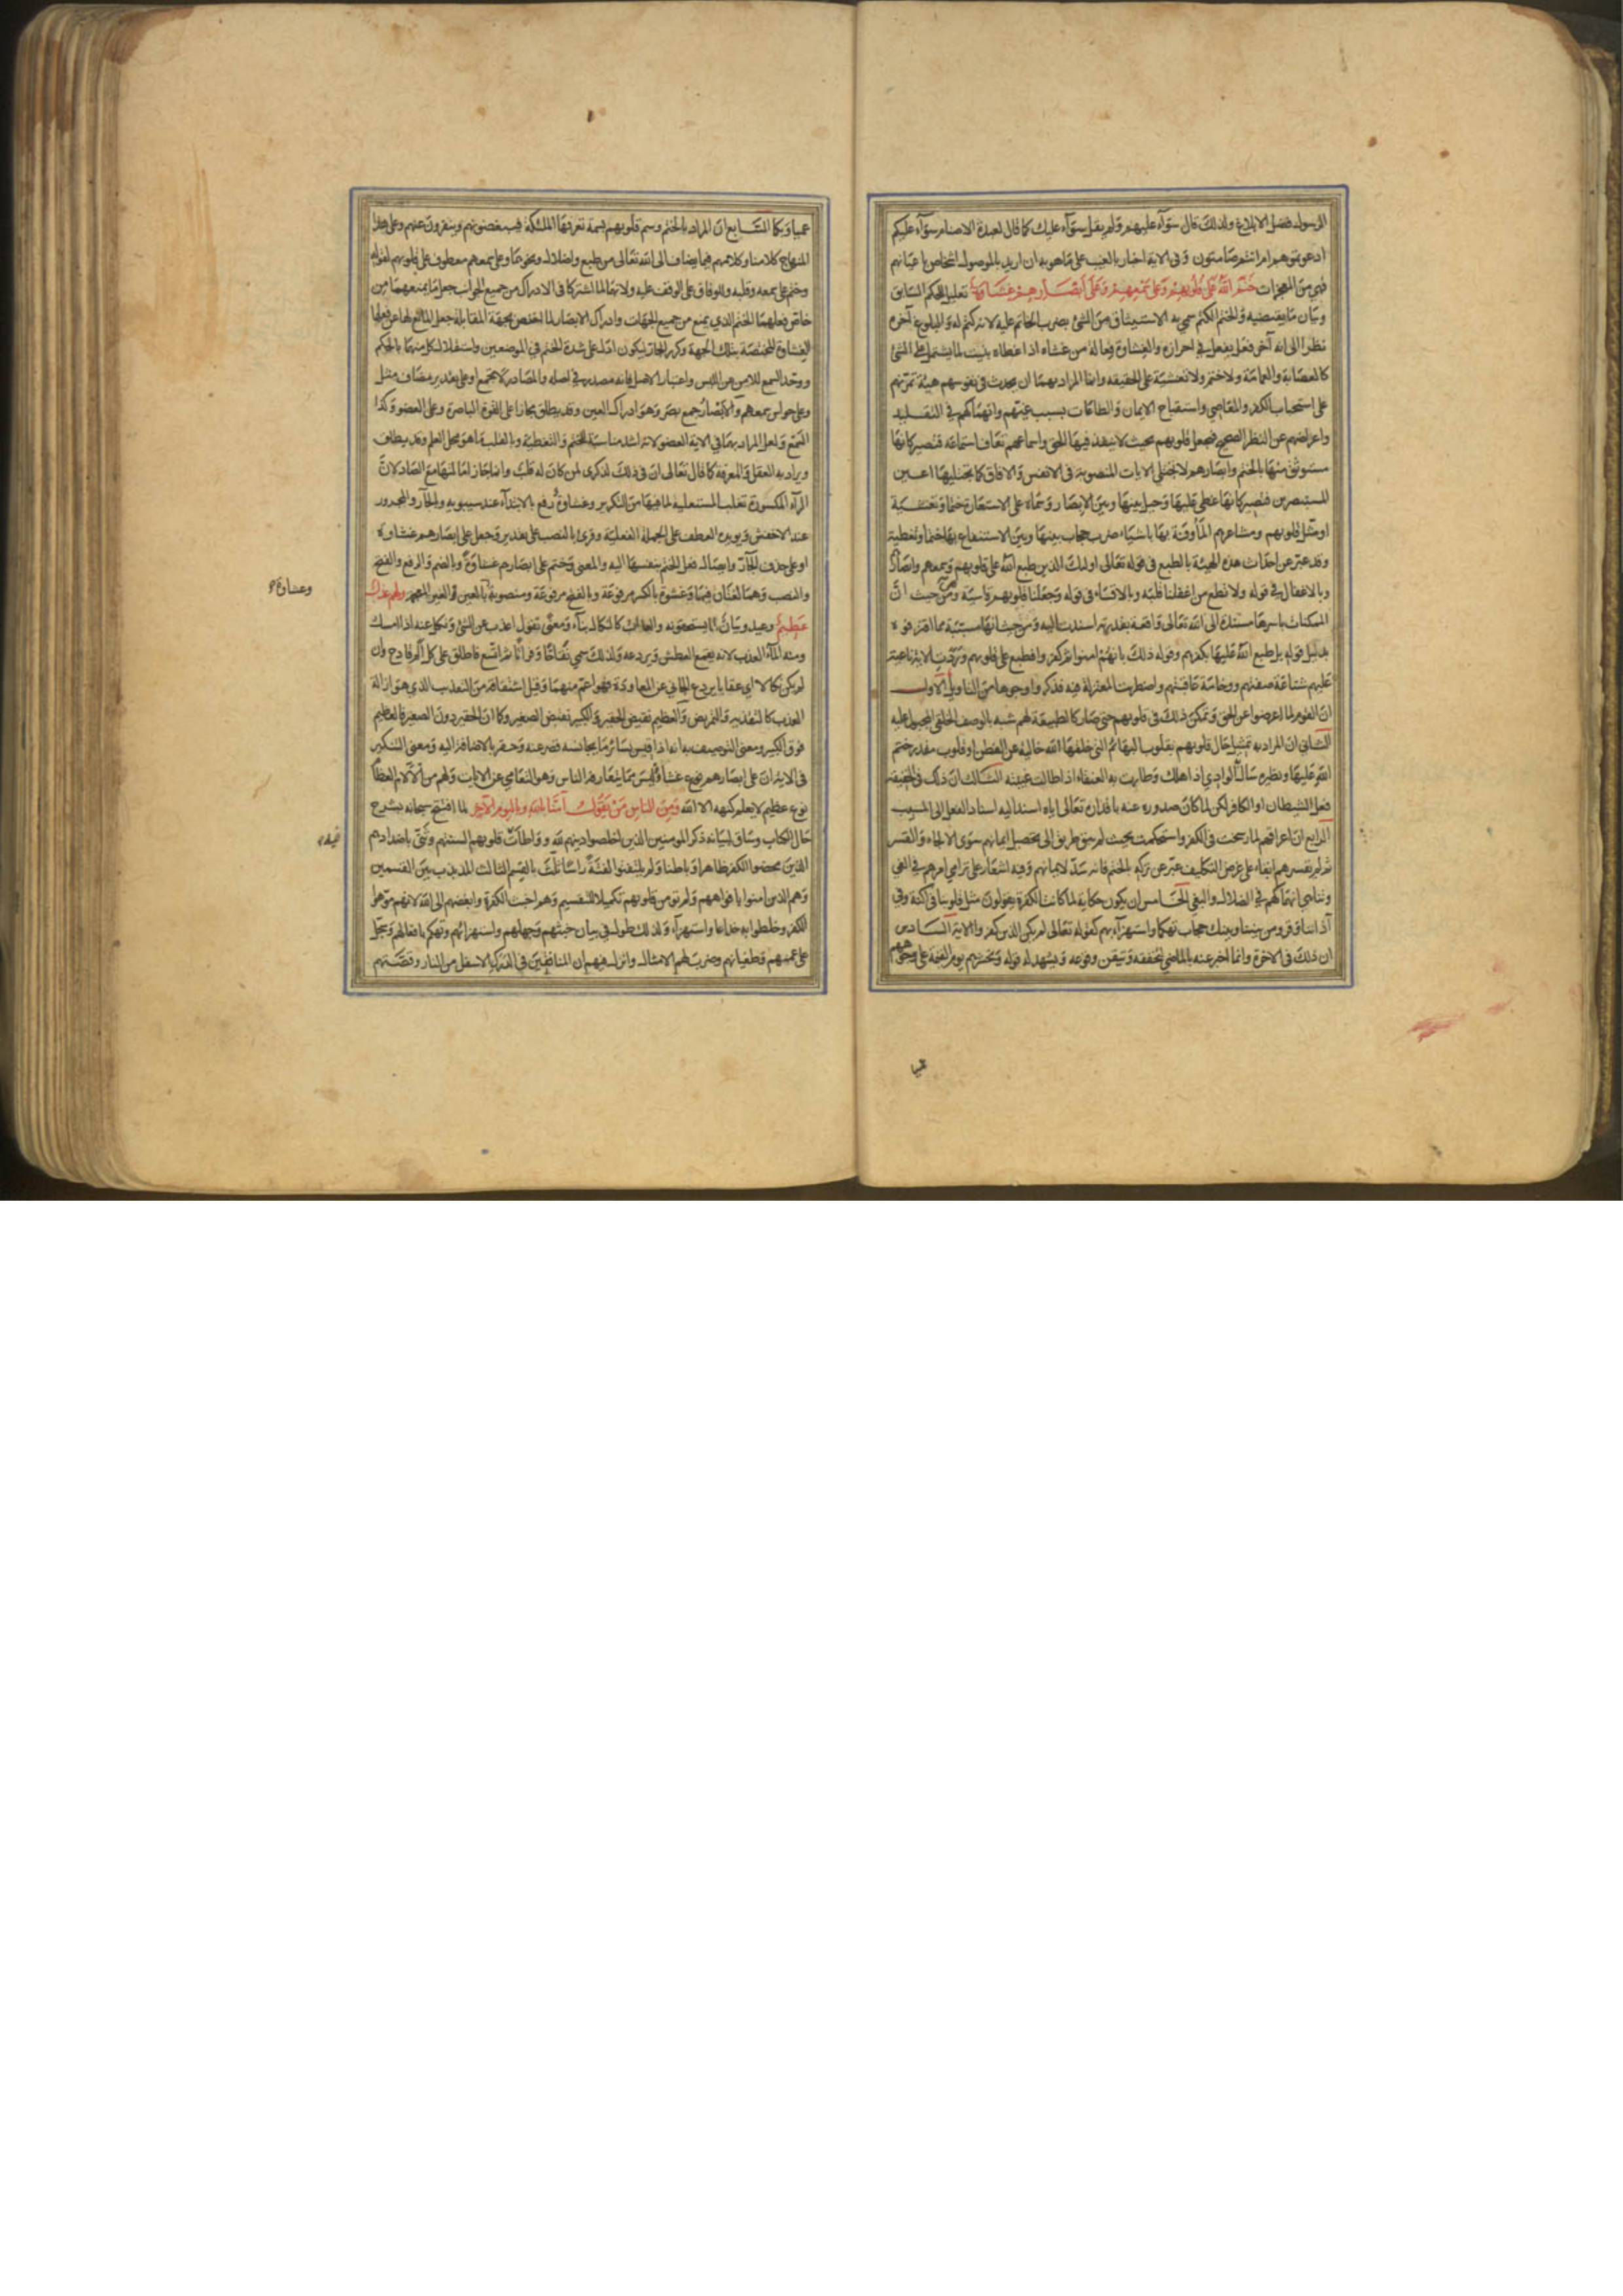 الرسول فضل الابلاغ ولذلك قال سوآء عليهم ولم يقل سوآء عليك كما قال لعبدة الاصنام سوآء عليكم
ادعوتموهم ام انتم صامتون وفى الاية اخبار بالغيب على ماهو به ان اريد بالموصول اشخاص باعيانهم
فهي من المعجزات ختم الله على قلوبهم وعلى سمعهم وعلى أبصارهم غشاوة تعليل للحكم السابق
وبيان ما يقتضيه والختم الكتم سمي به الاستيثاق من الشئ بضرب الخاتم عليه لانه كتم له والبلوغ آخره
نظرا الى انه آخر فعل يفعل في احرازه والغشاوة فعالة من غشاه اذا غطاه بنيت لما يشتمل على الشئ
كالعصابة والعمامة ولا ختم ولا تغشية على الحقيقه وانما المراد بهما ان يحدث في نفوسهم هيئة تمرنهم
على استحباب الكفر والمعاصي واستقباح الايمان والطاعات بسبب غيهم وانهماكهم في التقليد
واعراضهم عن النظر الصحيح فيجعل قلوبهم بحيث لا ينفذ فيها الحق واسماعهم تعاف استماعه فتصير كانها
مستوثق منها بالختم وابصارهم لا تجتلي الايات المنصوبة في الانفس والافاق كما تجتليها اعين
المستبصرين فتصير كانها غطي عليها وحيل بينها وبين الابصار وسماه على الاستعارة ختما وتغشية
او مثل قلوبهم ومشاعرهم المأوفة بها باشياء ضرب حجاب بينها وبين الاستنفاع بها ختما وتغطية
وقد عبر عن احداث هذه الهيئة بالطبع في قوله تعالى اولئك الذين طبع الله على قلوبهم وسمعهم وابصارهم
وبالاغفال في قوله ولا تطع من اغفلنا قلبه وبالاقساء في قوله وجعلنا قلوبهم قاسية وهي من حيث ان
الممكنات باسرها مستندة الى الله تعالى واقعة بقدرته اسندت اليه ومن حيث انها مسببة مما اقترفوه
بدليل قوله بل طبع الله عليها بكفرهم وقوله ذلك بانهم امنوا ثم كفروا فطبع على قلوبهم وردت الاية ناعية
عليهم شناعة صفتهم ووخامة عاقبتهم واضطربت المعتزلة فيه فذكروا وجوها من التاويل الاول
ان القوم لما اعرضوا عن الحق وتمكن ذلك في قلوبهم حتى صار كالطبيعة لهم شبه بالوصف الخلقي المجبول عليه
الثاني ان المراد به تمثيل حال قلوبهم بقلوب البهائم التي خلقها الله خالية عن الفطن او قلوب مقدر ختم
الله عليها ونظيره سال به الوادي اذا هلك وطارت به العنقاء اذا طالت غيبته الثالث ان ذلك في الحقيقة
فعل الشيطان او الكافر لكن لما كان صدوره عنه باقداره تعالى اياه اسند اليه اسناد الفعل الى المسبب
الرابع ان اعراقهم لما رسخت في الكفر واستحكمت بحيث لم يبق طريق الى تحصيل ايمانهم سوى الالجاء والقسر
ثم لم يقسرهم ابقاء على غرض التكليف عبر عن تركه بالختم فانه سد لايمانهم وفيه اشعار على ترامي امرهم في الغي
وتناهي انهماكهم في الضلال والبغي الخامس ان يكون حكاية لما كانت الكفرة يقولون مثل قلوبنا في اكنة وفي
آذاننا وقر ومن بيننا وبينك حجاب تهكما واستهزآء بهم كقوله تعالى لم يكن الذين كفروا الاية السادس
ان ذلك في الاخرة وانما اخبر عنه بالماضي لتحققه وتيقن وقوعه ويشهد له قوله ونحشرهم يوم القيمة على وجوههم
عميا
عميا وبكما السابع ان المراد بالختم وسم قلوبهم بسمة تعرفها الملئكة فيبغضونهم وينفرون عنهم وعلى هذا
المنهاج كلامنا وكلامهم فيما يضاف الى الله تعالى من طبع واضلال ونحوهما وعلى سمعهم معطوف على قلوبهم لقوله
وختم على سمعه وقلبه وللوفاق على الوقف عليه ولانهما لما اشتركا في الادراك من جميع الجوانب جعل ما يمنعهما من
خاص فعلهما الختم الذي يمنع من جميع الجهات وادراك الابصار لما اختص بجهة المقابلة جعل المانع لها عن فعلها
الغشاوة المختصة بتلك الجهة وكرر الجار ليكون ادل على شدة الختم في الموضعين واستقلال كل منهما بالحكم
ووحد السمع للامن من اللبس واعتبار الاصل فانه مصدر في اصله والمصادر لا تجمع او على تقدير مضاف مثل
وعلى حواس سمعهم والابصار جمع بصر وهو ادراك العين وقد يطلق مجازا على القوة الباصرة وعلى العضو وكذا
السمع ولعل المراد بهما في الاية العضو لانه اشد مناسبة للختم والتغطية وبالقلب ما هو محل العلم وقد يطلق
ويراد به العقل والمعرفة كما قال تعالى ان في ذلك لذكرى لمن كان له قلب وانما جاز امالتها مع الصاد لان
الرآء المكسورة تغلب المستعلية لما فيها من التكرير وغشاوة رفع بالابتدآء عند سيبويه وبالجار والمجرور
عند الاخفش ويويده العطف على الجملة الفعلية وقرئ بالنصب على تقدير وجعل على ابصارهم غشاوة
او على حذف الجآر وايصال فعل الختم بنفسه اليه والمعنى وختم على ابصارهم غشاوة وبالضم والرفع والفتح
والنصب وهما لغتان فيها وغشوة بالكسر مرفوعة وبالفتح مرفوعة ومنصوبة بالعين الغير المعجمة ولهم عذاب
وعشاوة
عظيم وعيد وبيان لما يستحقونه والعذاب كالنكال بنآء ومعنى تقول اعذب عن الشئ ونكل عنه اذا امسك
ومنه المآء العذب لانه يقمع العطش ويردعه ولذلك سمي نقاخا وفراتا ثم اتسع فاطلق على كل الم فادح وان
لم يكن نكالا اي عقابا يردع الجاني عن المعاودة فهو اعم منهما وقيل اشتقاقه من التعذيب الذي هو ازالة
العذب كالتقذية والتمريض والعظيم نقيض الحقير والكبير نقيض الصغير وكما ان الحقير دون الصغير فالعظيم
فوق الكبير ومعنى التوصيف به انه اذا قيس بسائر ما يجانسه قصر عنه وحقر بالاضافة اليه ومعنى التنكير
في الاية ان على ابصارهم نوع غشاوة ليس مما يتعارفه الناس وهو التعامي عن الايات ولهم من الآلام العظام
نوع عظيم لا يعلم كنهه الا الله ومن الناس من يقول آمنا بالله وباليوم الآخر لما افتتح سبحانه بشرح
حال الكتاب وساق لبيانه ذكر المومنين الذين اخلصوا دينهم لله وواطأت قلوبهم السنتهم وثنى باضدادهم
الذين محضوا الكفر ظاهرا وباطنا ولم يلتفتوا لفتة راسا ثلث بالقسم الثالث المذبذب بين القسمين
وهم الذين امنوا بافواههم ولم تومن قلوبهم تكميلا للتقسيم وهم اخبث الكفرة وابغضهم الى الله لانهم موهوا
الكفر وخلطوا به خداعا واستهزآء ولذلك طول في بيان خبثهم وجهلهم واستهزائهم وتهكم بافعالهم وسجل
على عمههم وطغيانهم وضرب لهم الامثال وانزل فيهم ان المنافقين في الدرك الاسفل من النار وقصتهم